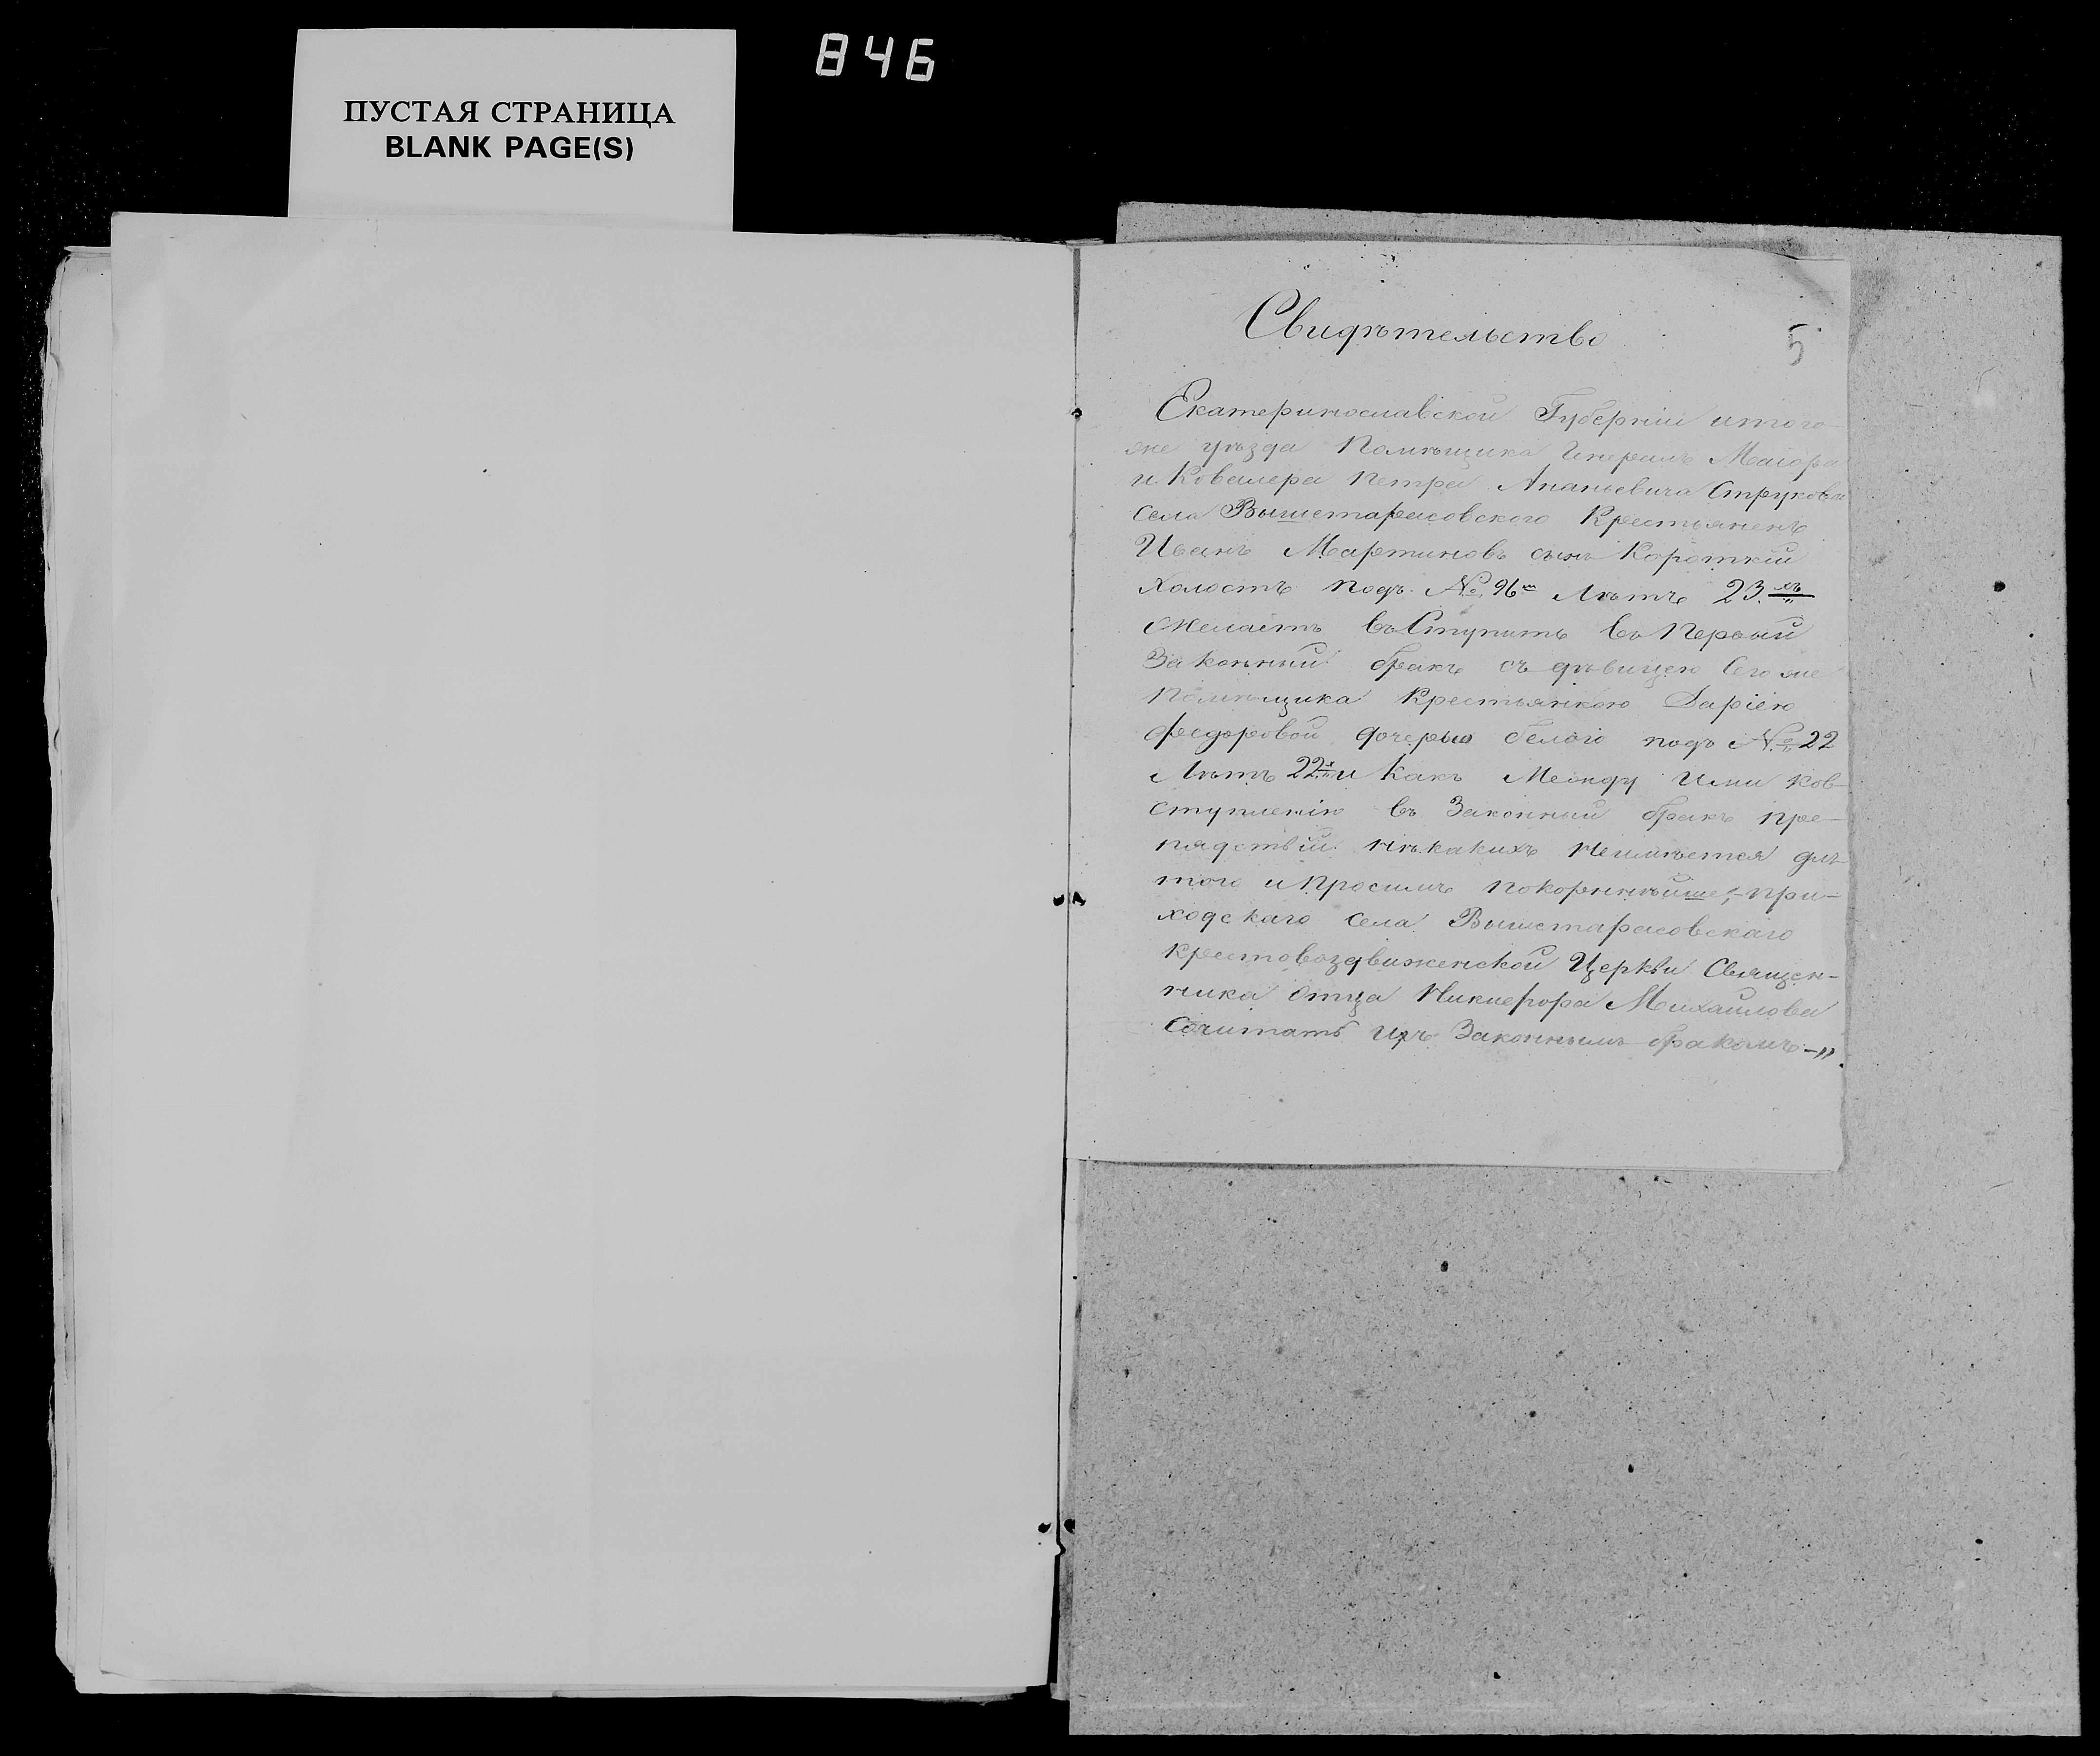 846
ПУСТАЯ СТРАНИЦА
BLANK PAGE(S)
5
Свидѣтельство
Екатеринославской Губерніи итого
же уѣзда Помѣщика Генералъ Маіора
и Ковалера Петра Ананьевича Струкова
села Вышетарасовского Крестьяненъ
Иванъ Мартиновъ сынъ Короткій
холостъ подъ № 96 Лѣтъ 23.хъ
Желаітъ въСтупить въ Первый
Законный бракъ съ дѣвицею Сего же
Помѣщика Крестьянкою Даріею
федоровой дочерью белаго подъ № 22
Лѣтъ 22 и Какъ Между ими ков-
ступленію въ Законный бракъ пре-
пядствій нѣкакихъ Неимѣется длѣ
того и просимъ покорнѣйше, при-
ходскаго села Вышетарасовскаго
крестовоздвиженской Церкви Священ-
ника отца Никиефора Михайлова
Сочитать ихъ Законнымъ бракомъ